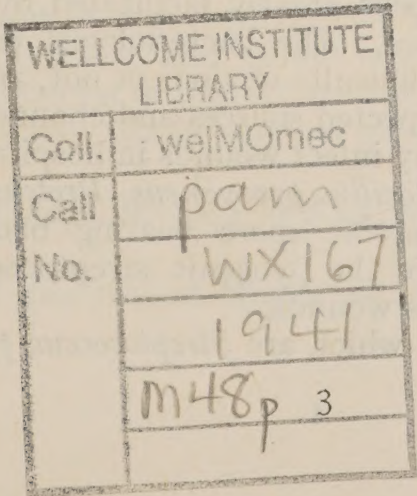 WELLCOME INSTITUTE
LIBRARY
Coll. welMOmec
Call pam
No. WX167
1941
M48p 3